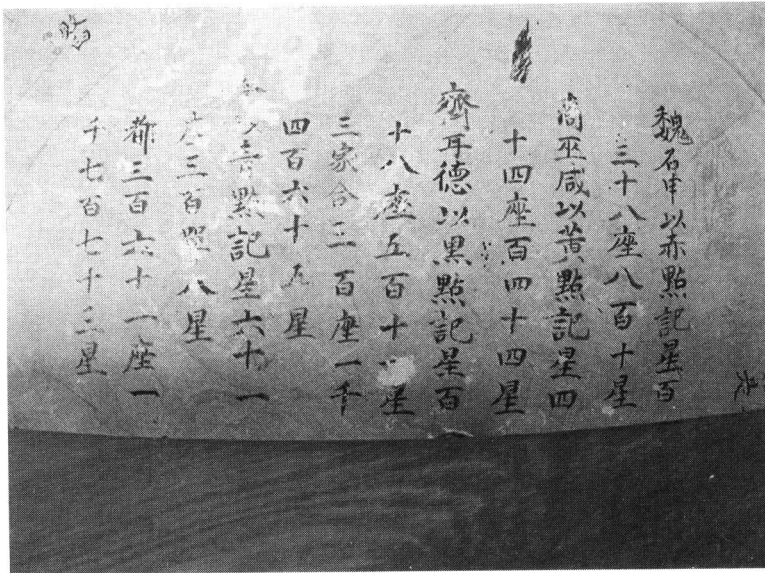 魏石申以赤點記星百
三十八座八百十星
商巫咸以黃點記星四
十四座百四十四星
齊耳德以黒點記星百
十八座五百十一星
三家合三百座一千
四百六十五星
青點記星六十一
座三百單八星
都三百六十一座一
千七百七十三星